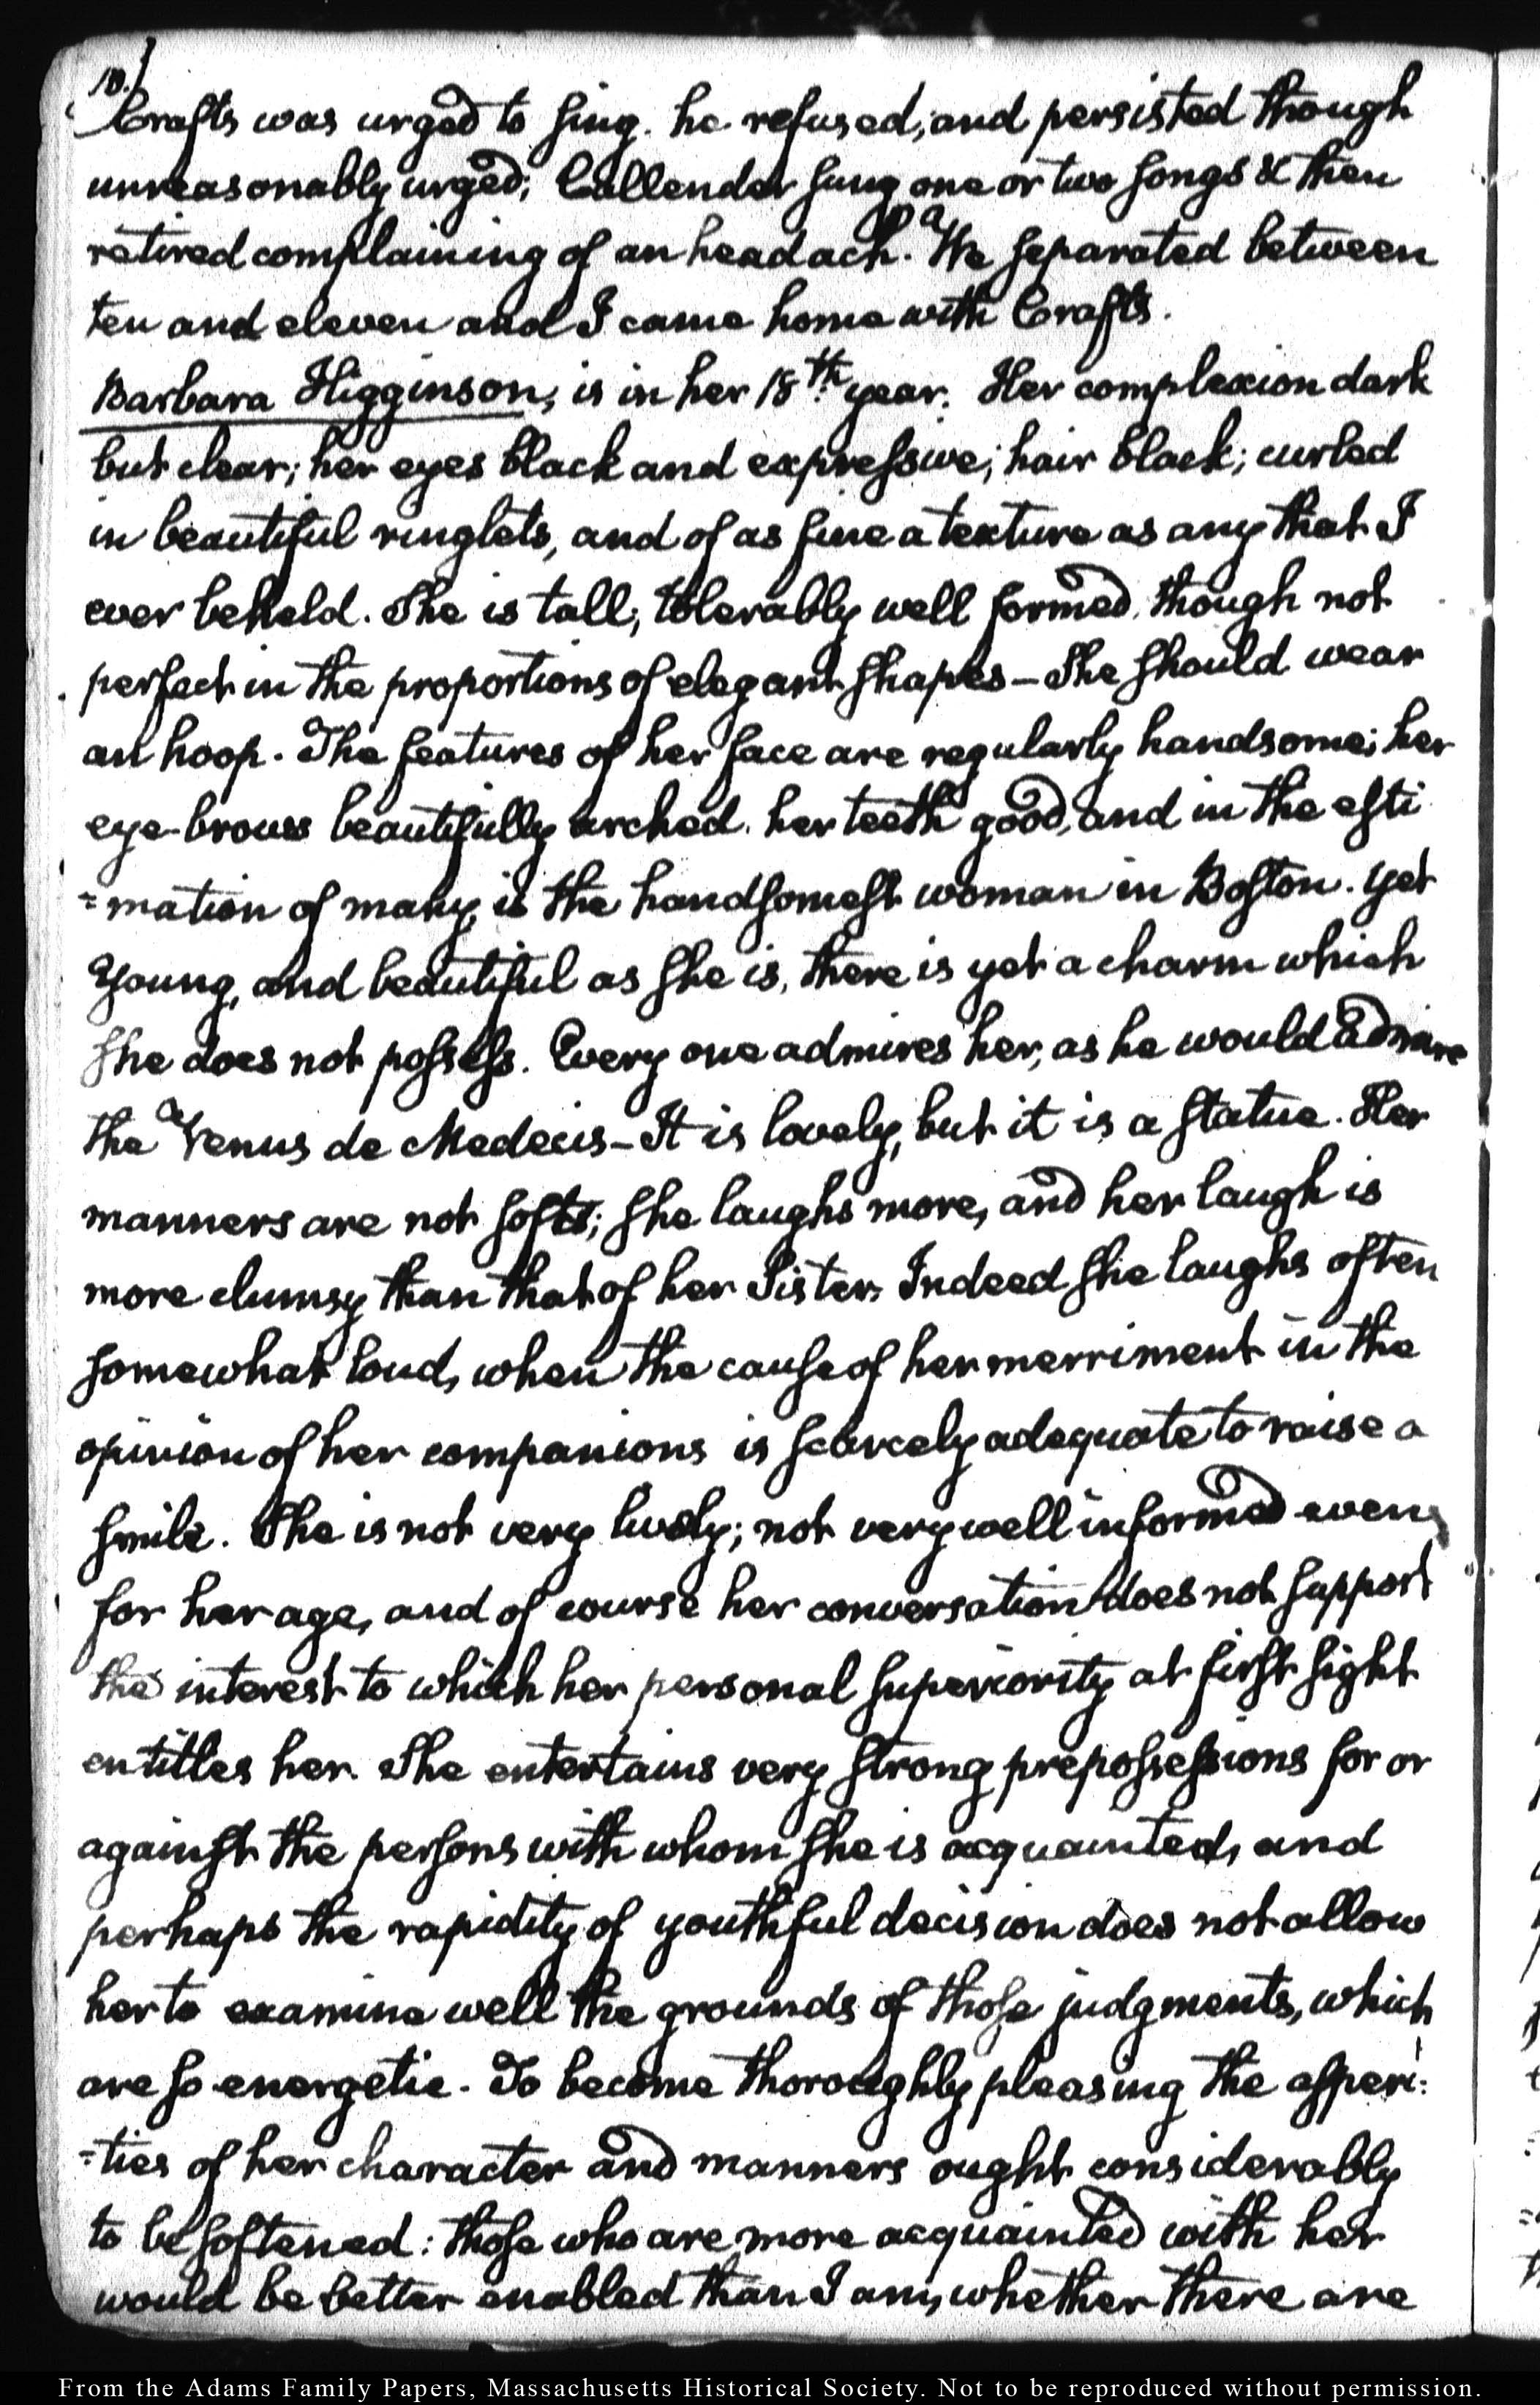 10.
Crafts was urged to sing. he refused; and persisted though
unreasonably urged; Callender sung one or two songs & then
retired complaining of an head ach. We separated between
ten and eleven and I came home with Crafts.
Barbara Higginson, is in her 18th. year. Her complexion dark
but clear; her eyes black and expressive; hair black; curled
in beautiful ringlets, and of as fine a texture as any that I
ever beheld. She is tall; tolerably well formed, though not
perfect in the proportions of elegant shapes — She should wear
an hoop. The features of her face are regularly handsome; her
eye-brows beautifully arched. her teeth good, and in the esti
=mation of many, is the handsomest woman in Boston. Yet
Young, and beautiful as she is, there is yet a charm which
she does not possess. Every one admires her, as he would admire
the Venus de Medecis — It is lovely, but it is a statue. Her
manners are not soft; she laughs more, and her laugh is
more clumsy than that of her Sister. Indeed she laughs often
somewhat loud, when the cause of her merriment in the
opinion of her companions is scarcely adequate to raise a
smile. She is not very lively; not very well informed even
for her age, and of course her conversation does not support
the interest to which her personal superiority at first sight
entitles her. She entertains very strong prepossessions for or
against the persons with whom she is acquainted, and
perhaps the rapidity of youthful decision does not allow
her to examine well the grounds of those judgments, which
are so energetic. To become thoroughly pleasing the asperi:
=ties of her character and manners ought considerably
to be softened: those who are more acquainted with her
would be better enabled than I am, whether there are
From the Adams Family Papers, Massachusetts Historical Society. Not to be reproduced without permission.